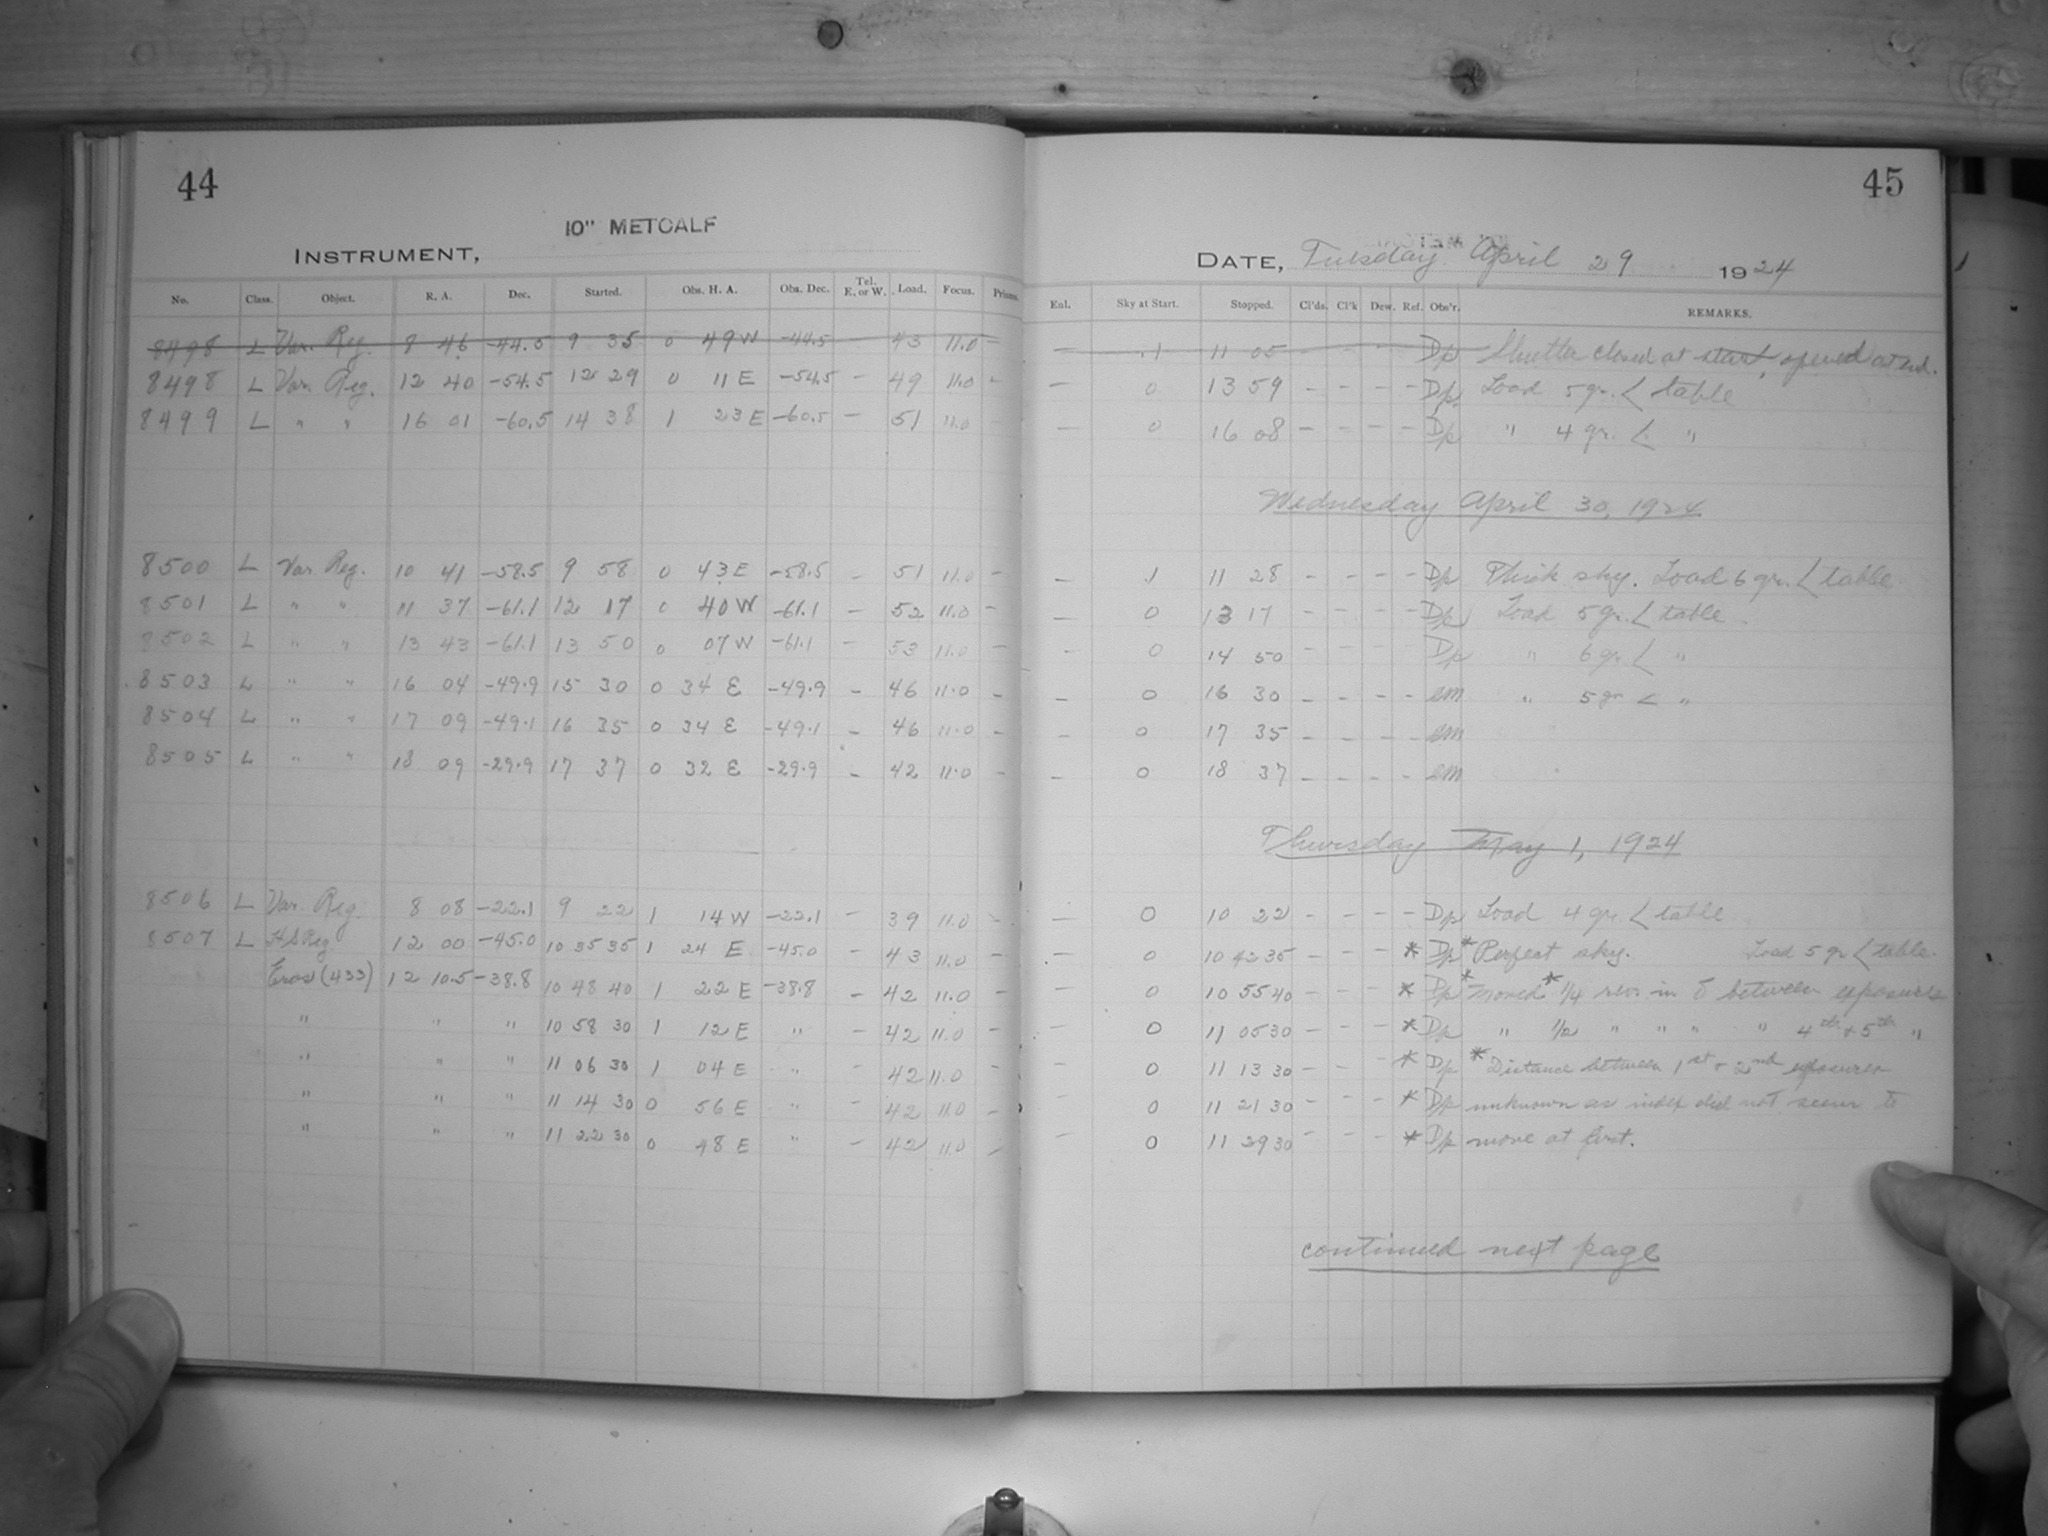 44
10" METCALF
INSTRUMENT,
No. Class. Object. R. A. Dec. Started. Obs. H. A. Obs. Dec. Tel. E. or W. Load. Focus. Prisms.
8498 L Var. Reg. 8 46 -44.5 9 35 0 49 W -44.5 - 43 11.0 -
8498 L Var. Reg. 12 40 -54.5 12 29 0 11 E -54.5 - 49 11.0 -
8499 L " " 16 01 -60.5 14 38 1 23 E -60.5 - 51 11.0 -
8500 L Var. Reg. 10 41 -58.5 9 58 0 43 E -58.5 - 51 11.0 -
8501 L " " 11 37 -61.1 12 17 0 40 W -61.1 - 52 11.0 -
8502 L " " 13 43 -61.1 13 50 0 07 W -61.1 - 53 11.0 -
8503 L " " 16 04 -49.9 15 30 0 34 E -49.9 - 46 11.0 -
8504 L " " 17 09 -49.1 16 35 0 34 E -49.1 - 46 11.0 -
8505 L " " 18 09 -29.9 17 37 0 32 E -29.9 - 42 11.0 -
8506 L Var. Reg. 8 08 -22.1 9 22 1 14 W -22.1 - 39 11.0 -
8507 L H S Reg. 12 00 -45.0 10 35 35 1 24 E -45.0 - 43 11.0 -
Eros (433) 12 10.5 -38.8 10 48 40 1 22 E -38.8 - 42 11.0 -
" " " 10 58 30 1 12 E " - 42 11.0 -
" " " 11 06 30 1 04 E " - 42 11.0 -
" " " 11 14 30 0 56 E " - 42 11.0 -
" " " 11 22 30 0 48 E " - 42 11.0 -
45
DATE, Tuesday April 29 1924
Enl. Sky at Start. Stopped. Cl'ds. Cl'k Dew. Ref. Obs'r. REMARKS.
- .1 11 05 - - - - Dp Shutter closed at start, opened at end.
- 0 13 59 - - - - Dp Load 5 gr. < table
- 0 16 08 - - - - Dp " 4 gr. < "
Wednesday April 30, 1924
- .1 11 28 - - - - Dp Thick sky. Load 6 gr. < table
- 0 13 17 - - - - Dp Load 5 gr. < table
- 0 14 50 - - - - Dp " 6 gr. < "
- 0 16 30 - - - - em " 5 gr < "
- 0 17 35 - - - - em
- 0 18 37 - - - - em
Thursday May 1, 1924
- 0 10 22 - - - - Dp Load 4 gr. < table
- 0 10 42 35 - - - * Dp * Perfect sky. Load 5 gr < table.
- 0 10 55 40 - - - * Dp * Moved * 1/4 rev. in δ between exposures
- 0 11 05 30 - - - * Dp " 1/2 " " " " 4th + 5th "
- 0 11 13 30 - - - * Dp * Distance between 1st + 2nd exposures
- 0 11 21 30 - - - * Dp unknown as index did not seem to
- 0 11 29 30 - - - * Dp move at first.
continued next page